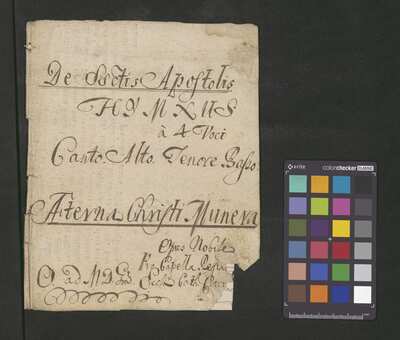 De Sctis Apostolis
HYMNUS
à 4 Voci
Canto Alto Tenore Basso
Æterna Christi Munera
Opus Nobile
Capella
O. ad M. D. G.
x-rite
colorchecker CLASSIC